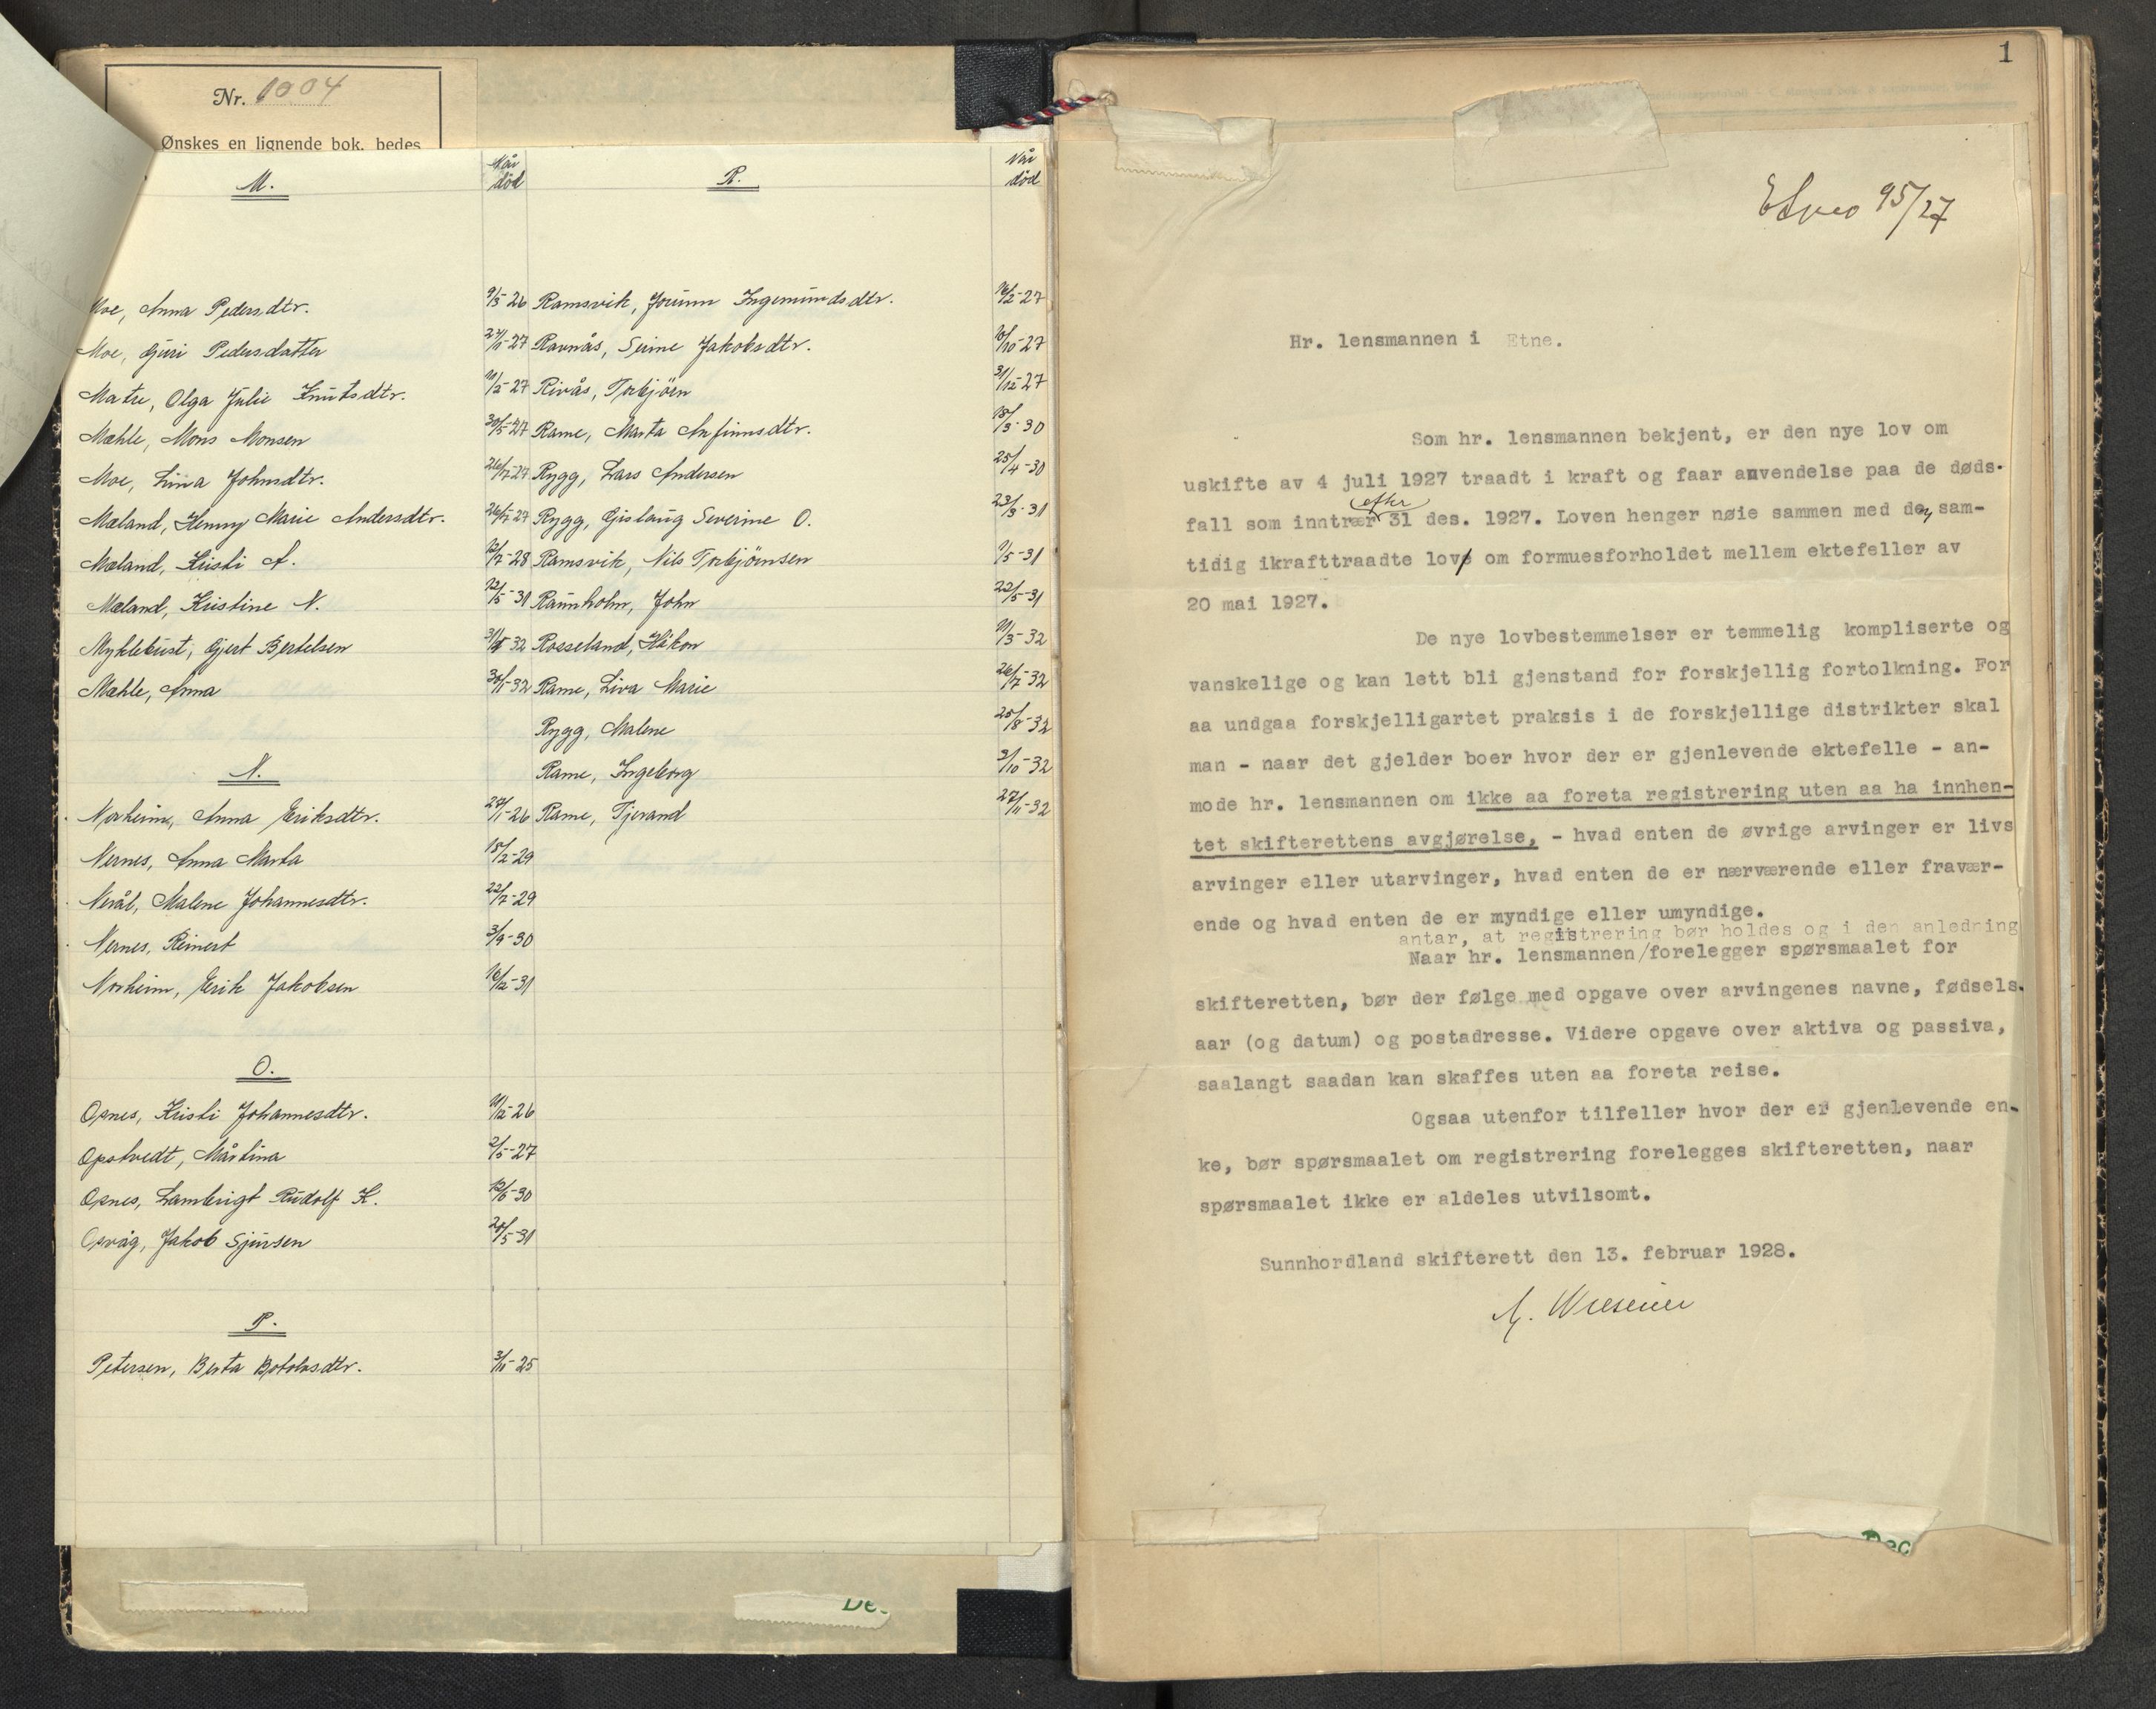 Nr. 1004
Ønskes en lignende bok, bedes
M.
Når død
Moe, Anna Pedersdtr. 9/3-26
Moe, Guri Pedersdatter 27/1-27
Matre, Olga Julie Knutsdtr. 11/2-27
Mæhle, Mons Monsen 30/5-27
Moe, Lina Johnsdtr. 26/7-27
Mæland, Henny Marie Andersdtr. 26/7-27
Mæland, Kristi A. 12/7-28
Mæland, Kristine N. 22/5-31
Myklebust, Gjert Bertelsen 32
Mæhle, Anna 30/1-32
N.
Norheim, Anna Eriksdtr. 27/1-26
Nernes, Anna Marta 15/2-29
Nerål, Malene Johannesdtr. 22/7-29
Nernes, Reinert 3/9-30
Norheim, Erik Jakobsen 16/12-31
O.
Opnes, Kristi Johannesdtr. 11/12-26
Opstvedt, Mårtina 2/5-27
Opnes, Lambrigt Rudolf K. 12/6-30
Opvåg, Jakob Sjursen 20/5-31
P.
Petersen, Berta Botolvsdtr. 3/11-25
R.
Når død
Ramsvik, Jorunn Ingemundsdtr. 16/2-27
Ravnås, Serine Jakobsdtr. 10/10-27
Rivås, Torbjörn 31/12-27
Rame, Marta Anfinnsdtr. 15/3-30
Rygg, Lars Andersen 25/4-30
Rygg, Gislaug Severine O. 23/3-31
Ramsvik, Nils Torbjörnsen 1/5-31
Raunholm, John 22/5-31
Rosseland, Håkon 11/3-32
Rame, Liva Marie 26/7-32
Rygg, Malene 25/8-32
Rame, Ingeborg 3/10-32
Rame, Tjerand 27/11-32
De
1
Etne 95/27
Hr. lensmannen i Etne.
Som hr. lensmannen bekjent, er den nye lov om
uskifte av 4 juli 1927 traadt i kraft og faar anvendelse paa de døds-
efter
fall som inntrær 31 des. 1927. Loven henger nøie sammen med den sam-
tidig ikrafttraadte lov om formuesforholdet mellem ektefeller av
20 mai 1927.
De nye lovbestemmelser er temmelig kompliserte og
vanskelige og kan lett bli gjenstand for forskjellig fortolkning. For
aa undgaa forskjelligartet praksis i de forskjellige distrikter skal
man - naar det gjelder boer hvor der er gjenlevende ektefelle - an-
mode hr. lensmannen om ikke aa foreta registrering uten aa ha innhen-
tet skifterettens avgjørelse, - hvad enten de øvrige arvinger er livs
arvinger eller utarvinger, hvad enten de er nærværende eller fravær-
ende og hvad enten de er myndige eller umyndige.
antar, at registrering bør holdes og i den anledning
Naar hr. lensmannen/forelegger spørsmaalet for
skifteretten, bør der følge med opgave over arvingenes navne, fødsels-
aar (og datum) og postadresse. Videre opgave over aktiva og passiva,
saalangt saadan kan skaffes uten aa foreta reise.
Ogsaa utenfor tilfeller hvor der er gjenlevende en-
ke, bør spørsmaalet om registrering forelegges skifteretten, naar
spørsmaalet ikke er aldeles utvilsomt.
Sunnhordland skifterett den 13. februar 1928.